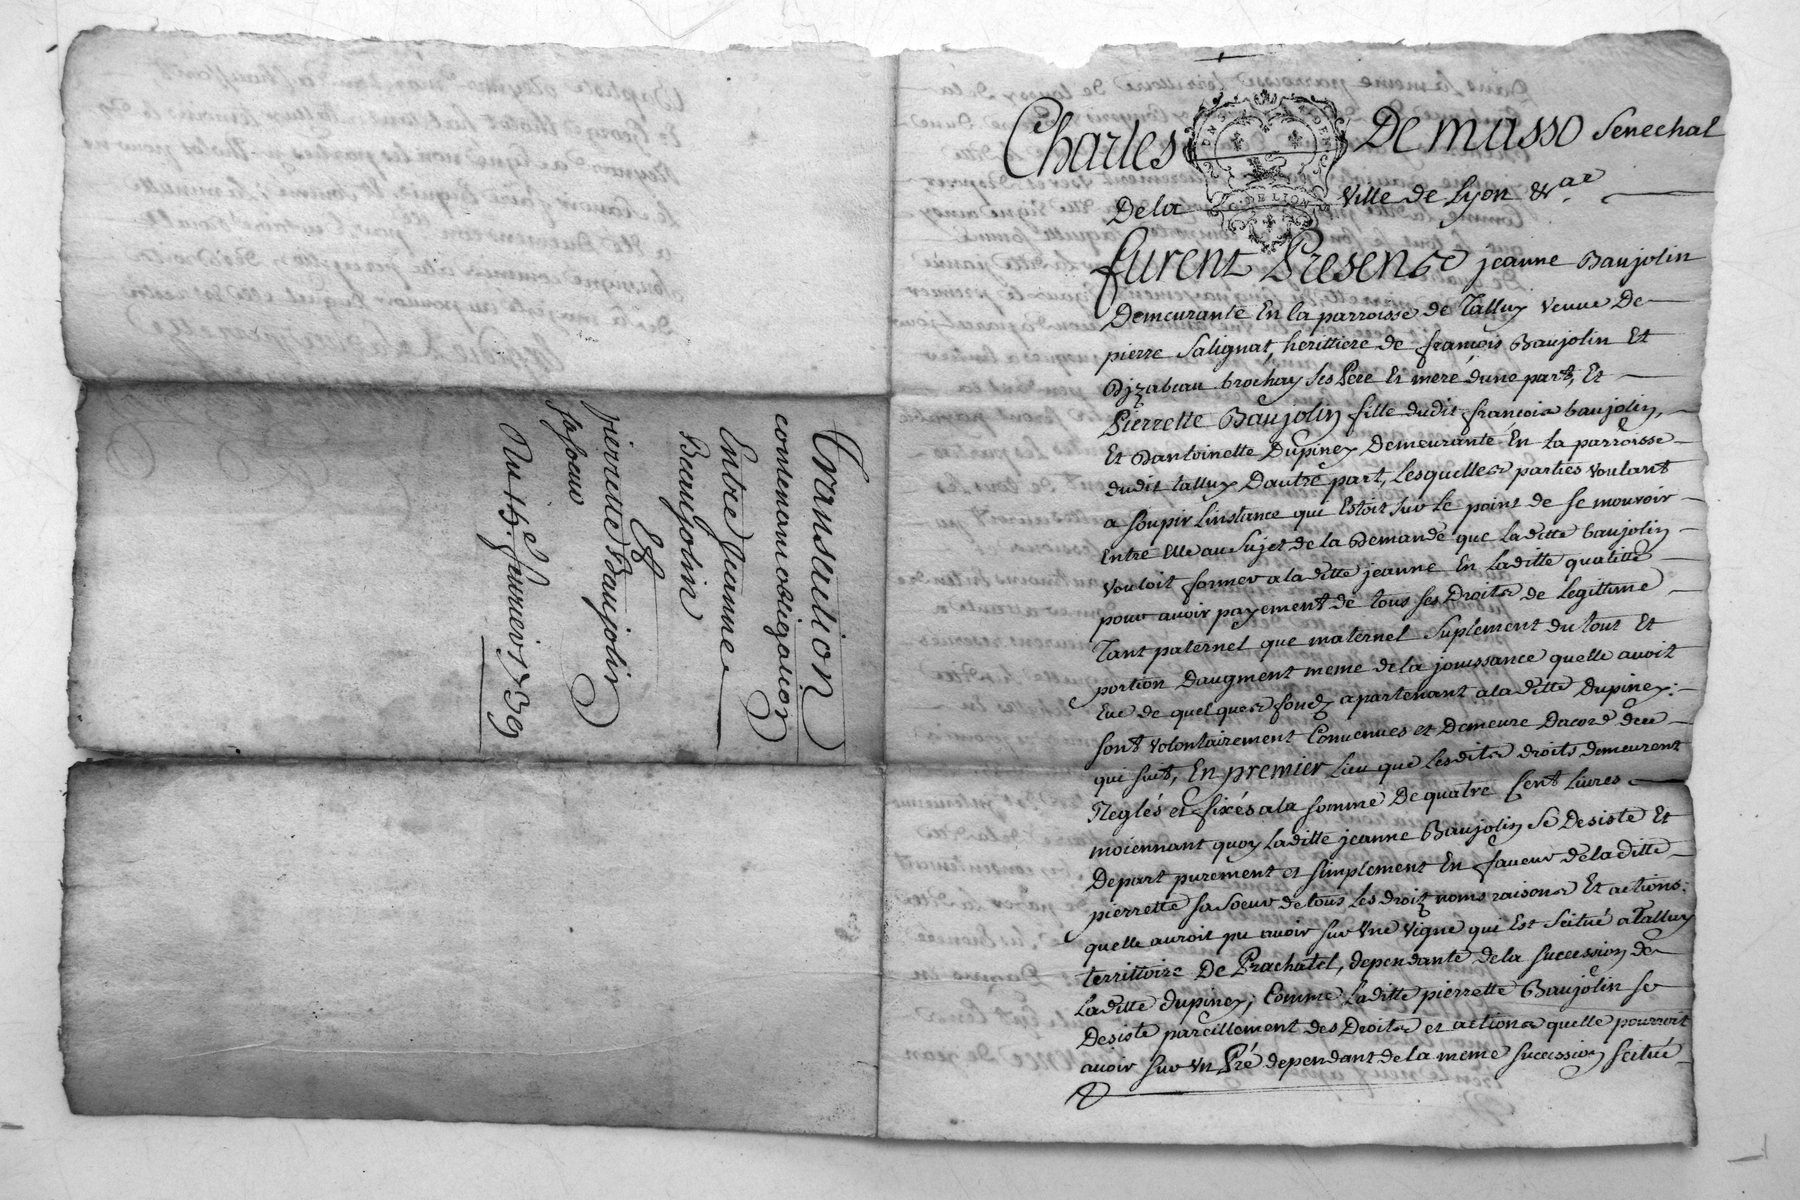 Transaction
contenant obligation
Entre Jeanne
Beaujolin
Et
pierrette Baujolin
sa soeur
Du 15.e feurier 1739
Charles De masso Senechal
De la Ville de Lyon &.
G. DE LION
furent Presente jeanne Baujolin
Demeurante En la parroisse de Talluy veuue De
pierre Salignat, herittiere de francois Baujolin Et
Djzabeau brochay ses Pere Et mere dune part, Et
Pierrette Baujolin fille dudit francois baujolin,
Et Dantoinette Dupiney Demeurante En la parroisse
dudit talluy Dautre part, Lesquelles parties voulant
a soupir Linstance qui Estoit sur Le point de se mouvoir
Entre Elle au sujet de la Demande que Laditte baujolin
vouloit former a laditte jeanne En Laditte qualitté
pour auoir payement de tous ses Droits de Legittime
Tant paternel que maternel Suplement du tout Et
portion Daugment meme de la jouissance quelle auoit
Eue de quelques fondz apartenant a laditte Dupiney:
sont volontairement Conuenues et Demeure Dacord de ce
qui suit, En premier Lieu que Lesdits droits demeurent
Reglés et fixés a la somme De quatre sent Liures
moiennant quoy Laditte jeanne Baujolin Se Desiste Et
Depart purement et simplement En faueur de laditte
pierrette sa Soeur de tous Les droitz noms raisons Et actions:
quelle auroit pu auoir sur Vne vigne qui Est scitué a Talluy
territtoire De Prachatel, dependante de la succession de
Laditte dupiney; Comme Laditte pierrette Baujolin se
Desiste pareillement des Droits et actions quelle pourroit
auoir sur vn Pré dependant de la meme succession scitué